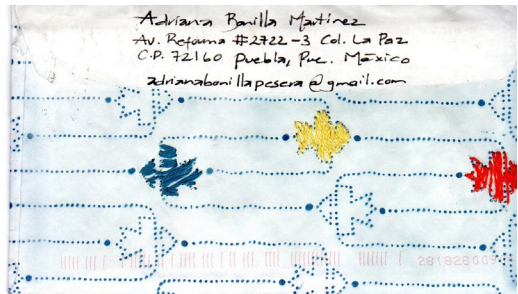 Adriana Bonilla Martinez
Av. Reforma #2722-3 Col. La Paz
C.P. 72160 Puebla, Pue. México
adrianabonillapesera@gmail.com